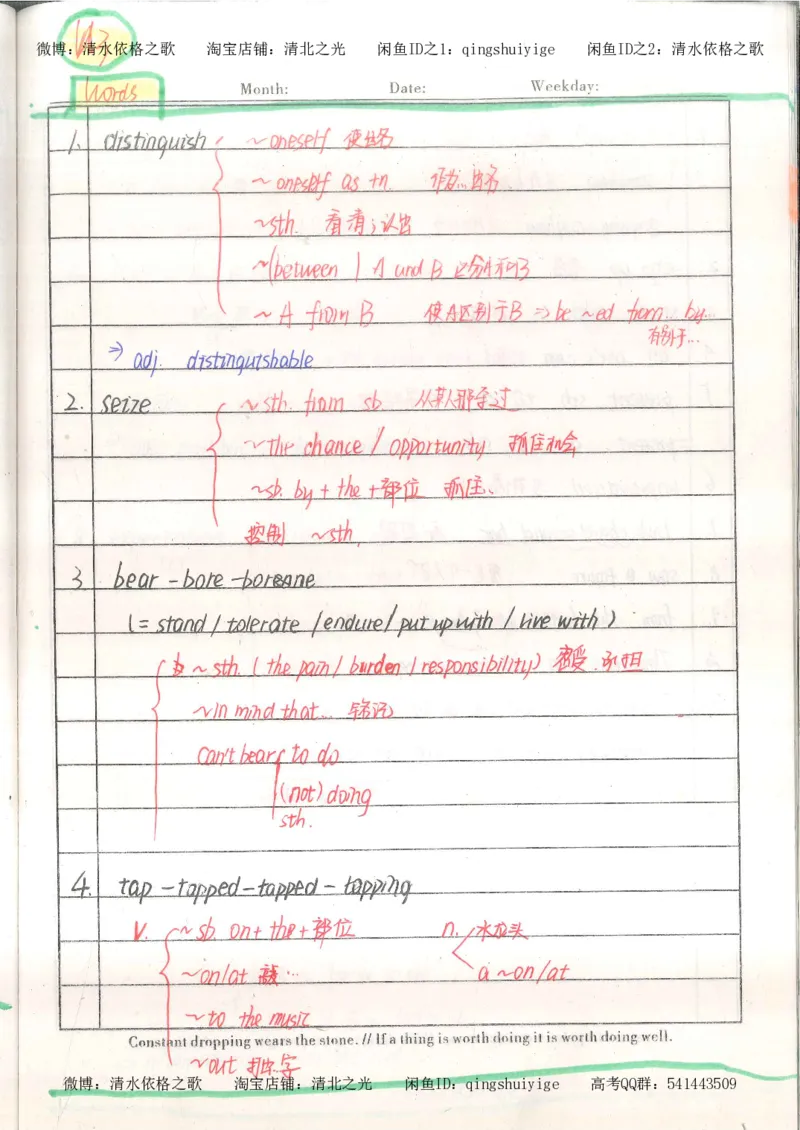 U3
微博：清水依格之歌 淘宝店铺：清北之光 闲鱼ID之1：qingshuiyige 闲鱼ID之2：清水依格之歌
Words Month: Date: Weekday:
1. distinguish ~oneself 使出名
~oneself as +n. 作为…出名
~sth. 看清；认出
~(between) A and B 区分A和B
~A from B 使A区别于B ⇒ be ~ed from… by…
有别于…
→ adj. distinguishable
2. seize ~sth. from sb. 从某人那夺过
~the chance / opportunity 抓住机会
~sb. by + the +部位 抓住、
控制 ~sth.
3 bear -bore -borne
(= stand / tolerate / endure / put up with / live with)
~sth. (the pain / burden / responsibility) 忍受.承担
~in mind that… 铭记
can't bear to do
(not) doing
sth.
4. tap -tapped-tapped-tapping
v. ~sb. on+ the+部位 n. 水龙头
~on/at 敲… a ~on/at
~to the music
Constant dropping wears the stone. // If a thing is worth doing it is worth doing well.
~out
微博：清水依格之歌 淘宝店铺：清北之光 闲鱼ID：qingshuiyige 高考QQ群：541443509